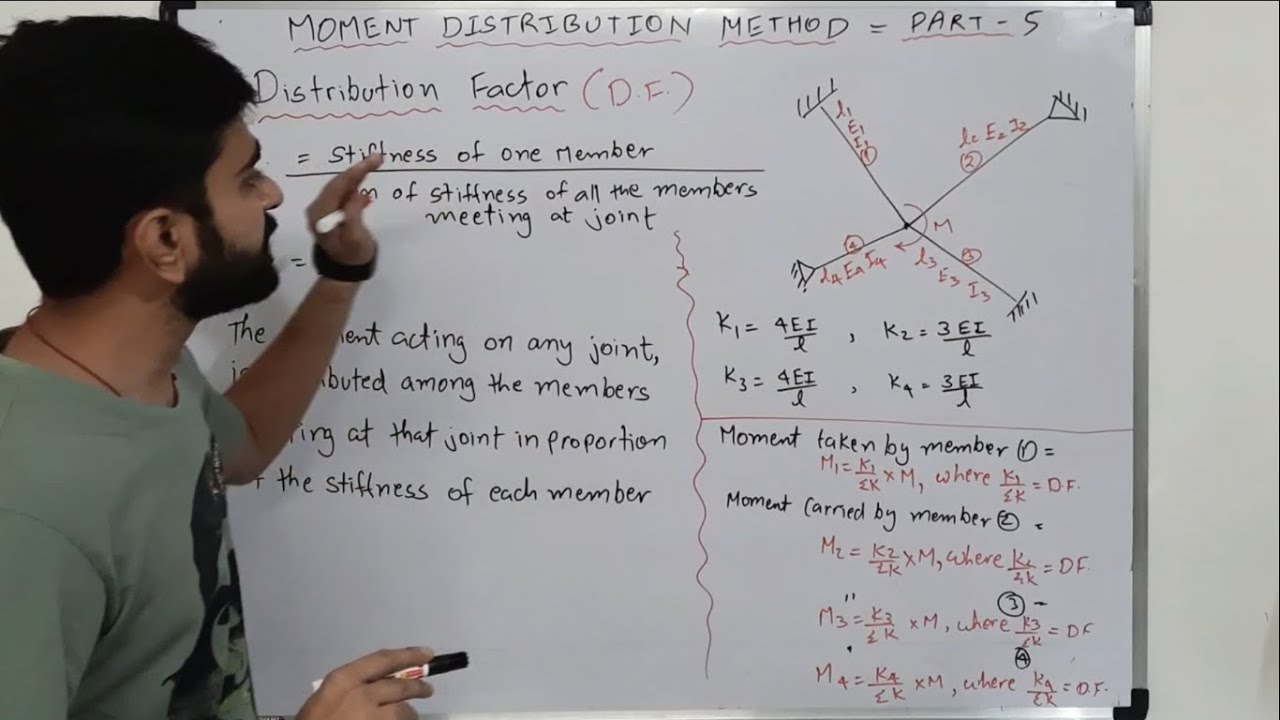 MOMENT DISTRIBUTION METHOD = PART - 5
Distribution Factor (D.F.)
= Stiffness of one Member
of stiffness of all the members
meeting at joint
=
The acting on any joint,
among the members
at that joint in proportion
the stiffness of each member
l1 E1 I1 ①
l2 E2 I2 ②
M
l3 E3 I3 ③
l4 E4 I4 ④
K1 = 4EI/l , K2 = 3EI/l
K3 = 4EI/l , K4 = 3EI/l
Moment taken by member ① =
M1 = K1/ΣK × M, where K1/ΣK = D.F.
Moment Carried by member ② =
M2 = K2/ΣK × M, where K2/ΣK = DF.
" ③ -
M3 = K3/ΣK × M, where K3/ΣK = DF
④
M4 = K4/ΣK × M, where K4/ΣK = D.F.